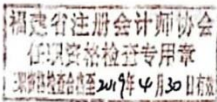 福建省注册会计师协会
任职资格检查专用章
2019年4月30日有效